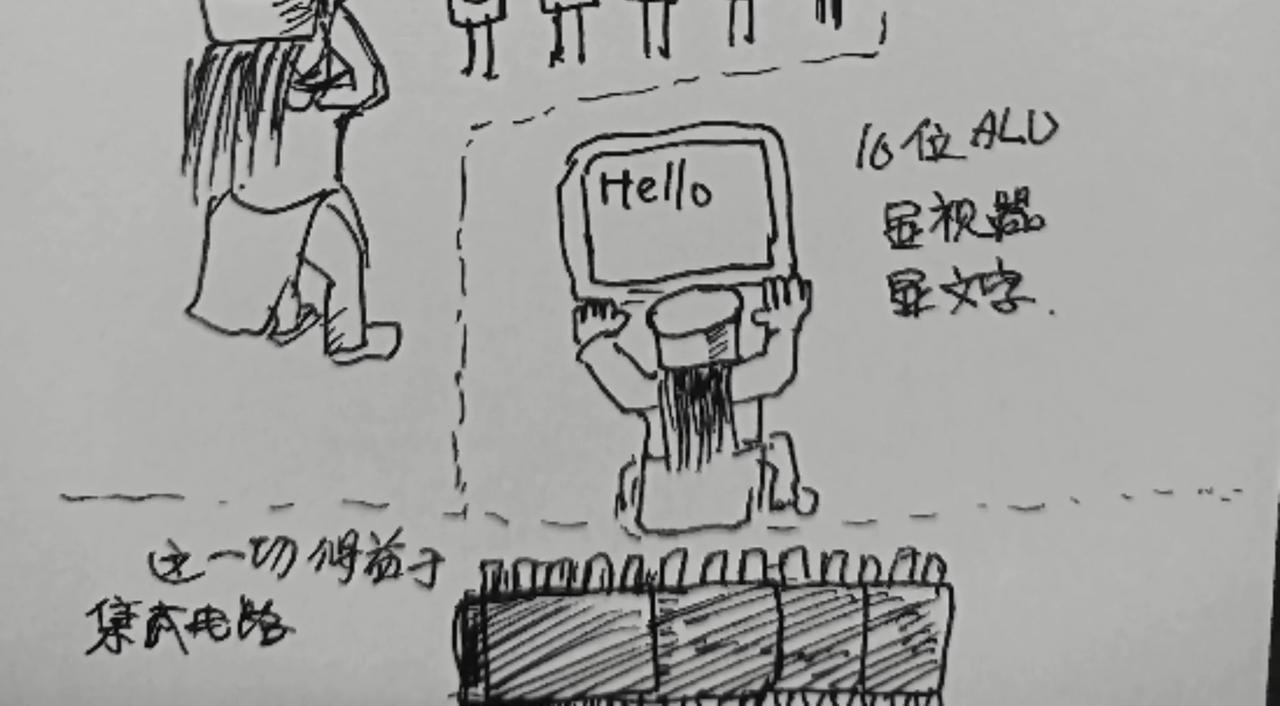 Hello
16位ALU
显视器
显文字.
这一切得益于
集成电路